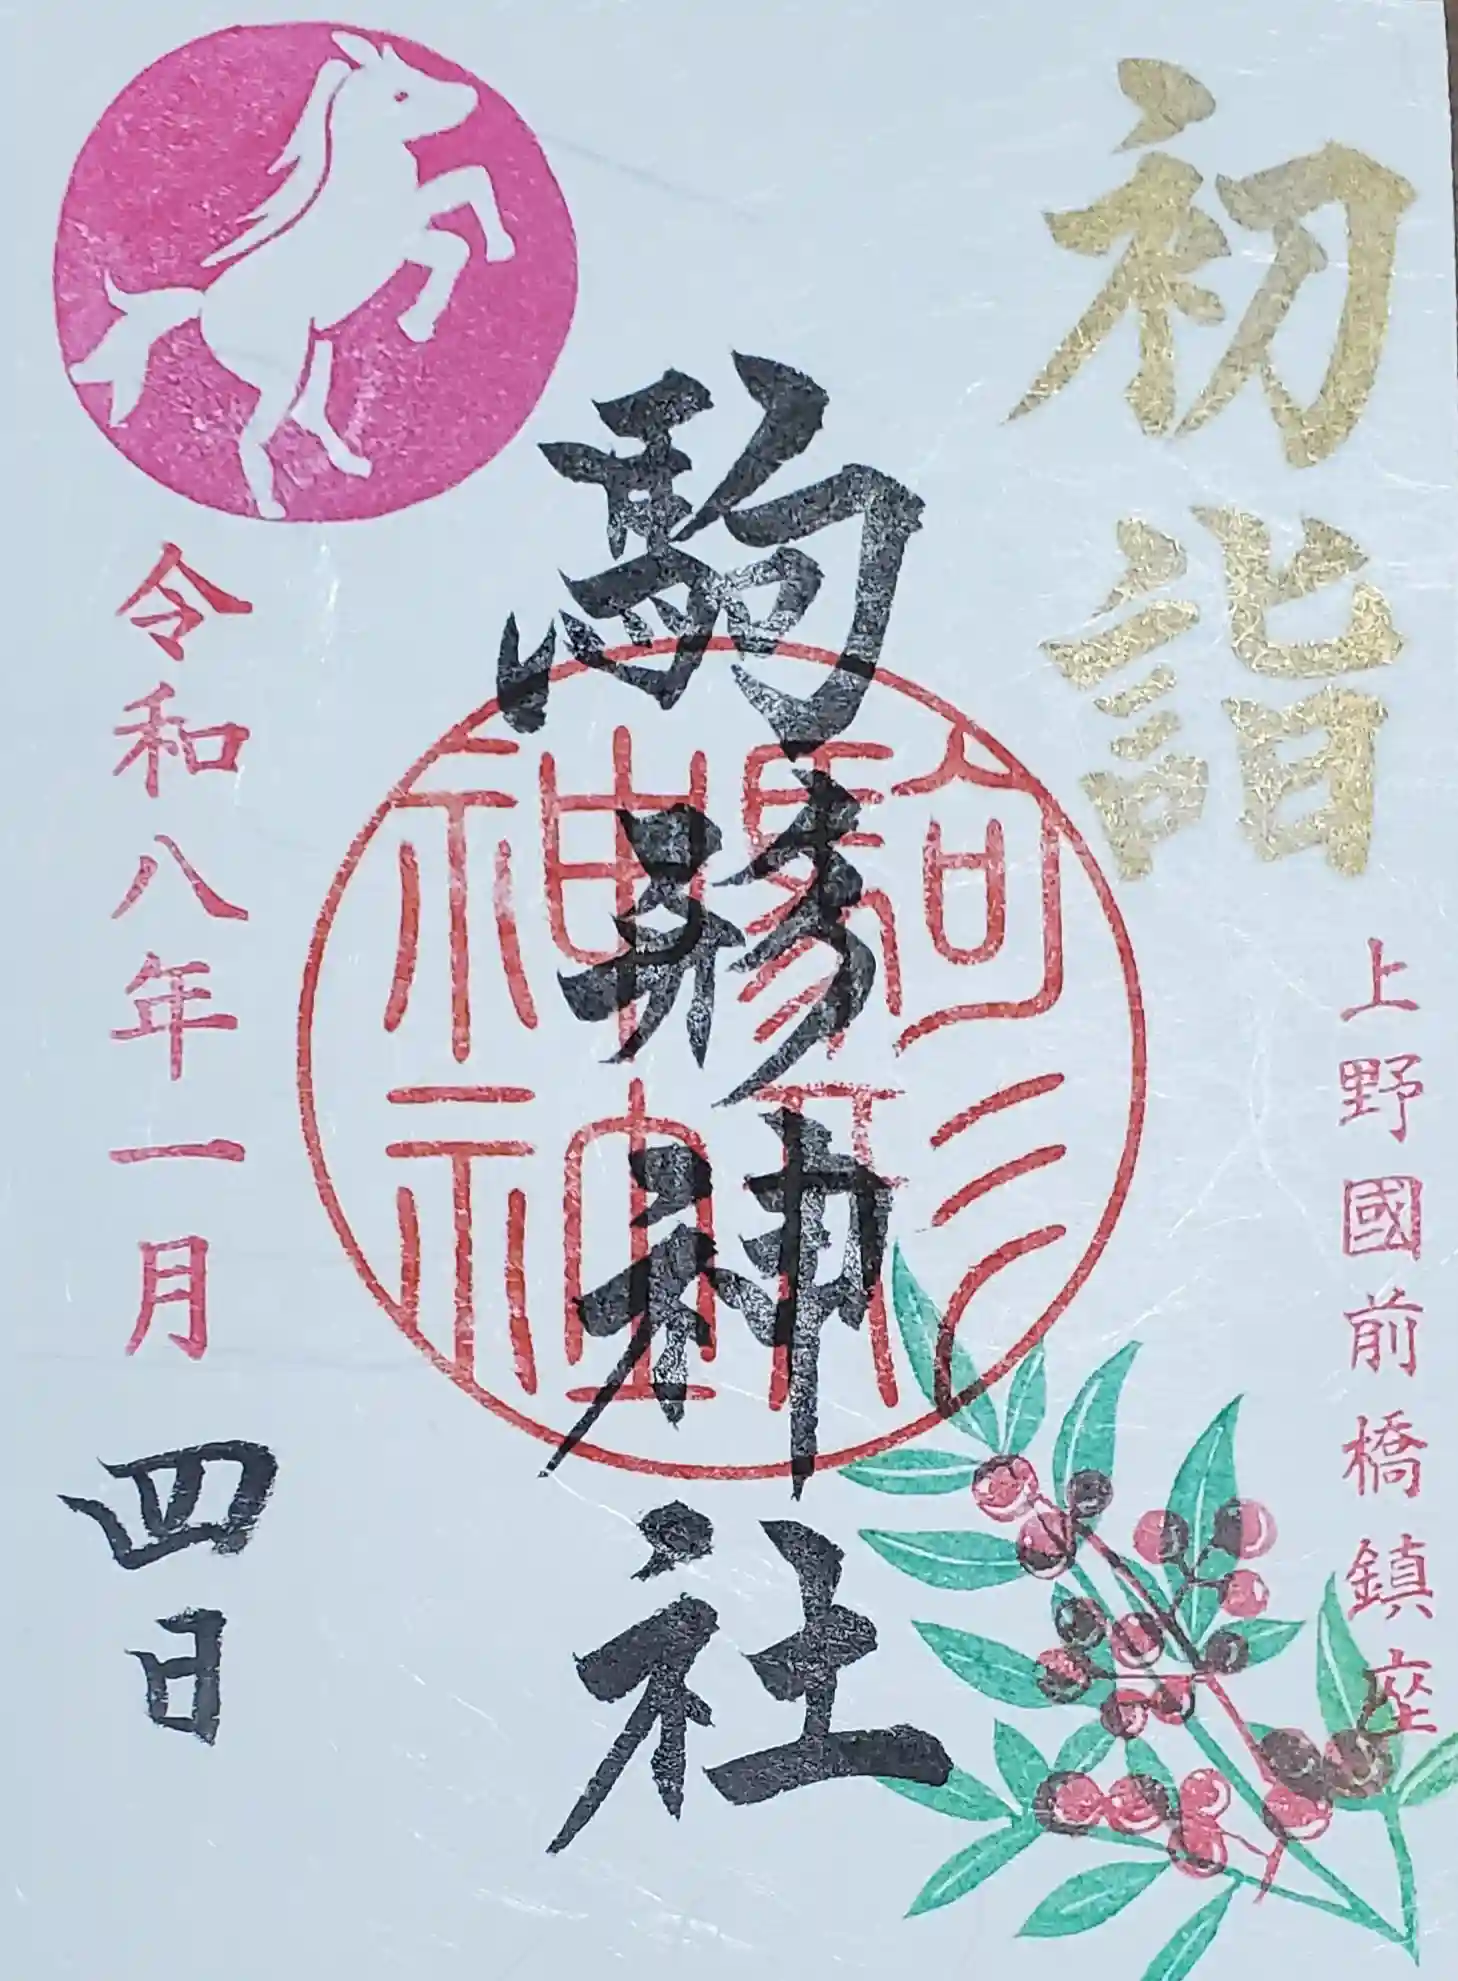 初詣
上野國前橋鎮座
駒形神社
駒形
神社
令和八年一月四日